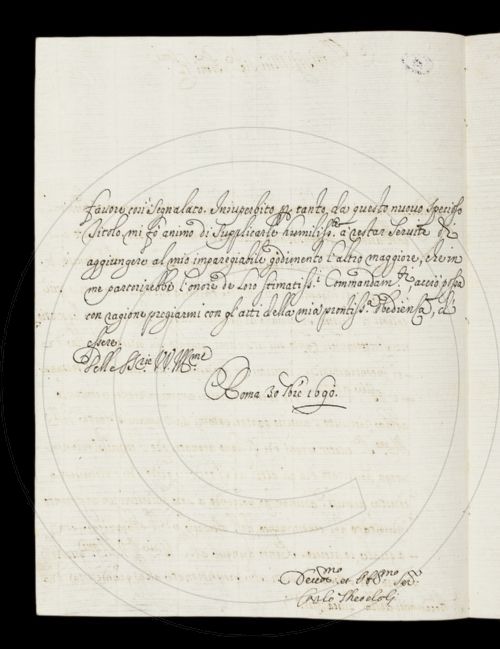 favore così segnalato. Insuperbito p tanto da questo nuovo specioso
titolo, mi fò animo di supplicarle humiliss.te a restar servite di
aggiungere al mio impareggiabile godimento l'altro maggiore, che in
me partorirebbe l'onore de loro stimatiss.i Commandam.ti acciò possa
con ragione pregiarmi con gl'atti della mia prontiss.a Obedienza, di
essere.
Delle SS.rie VV. Ill.me
Roma 30 1690.
Devot.mo et Obl.mo Ser.
Carlo Theodoli